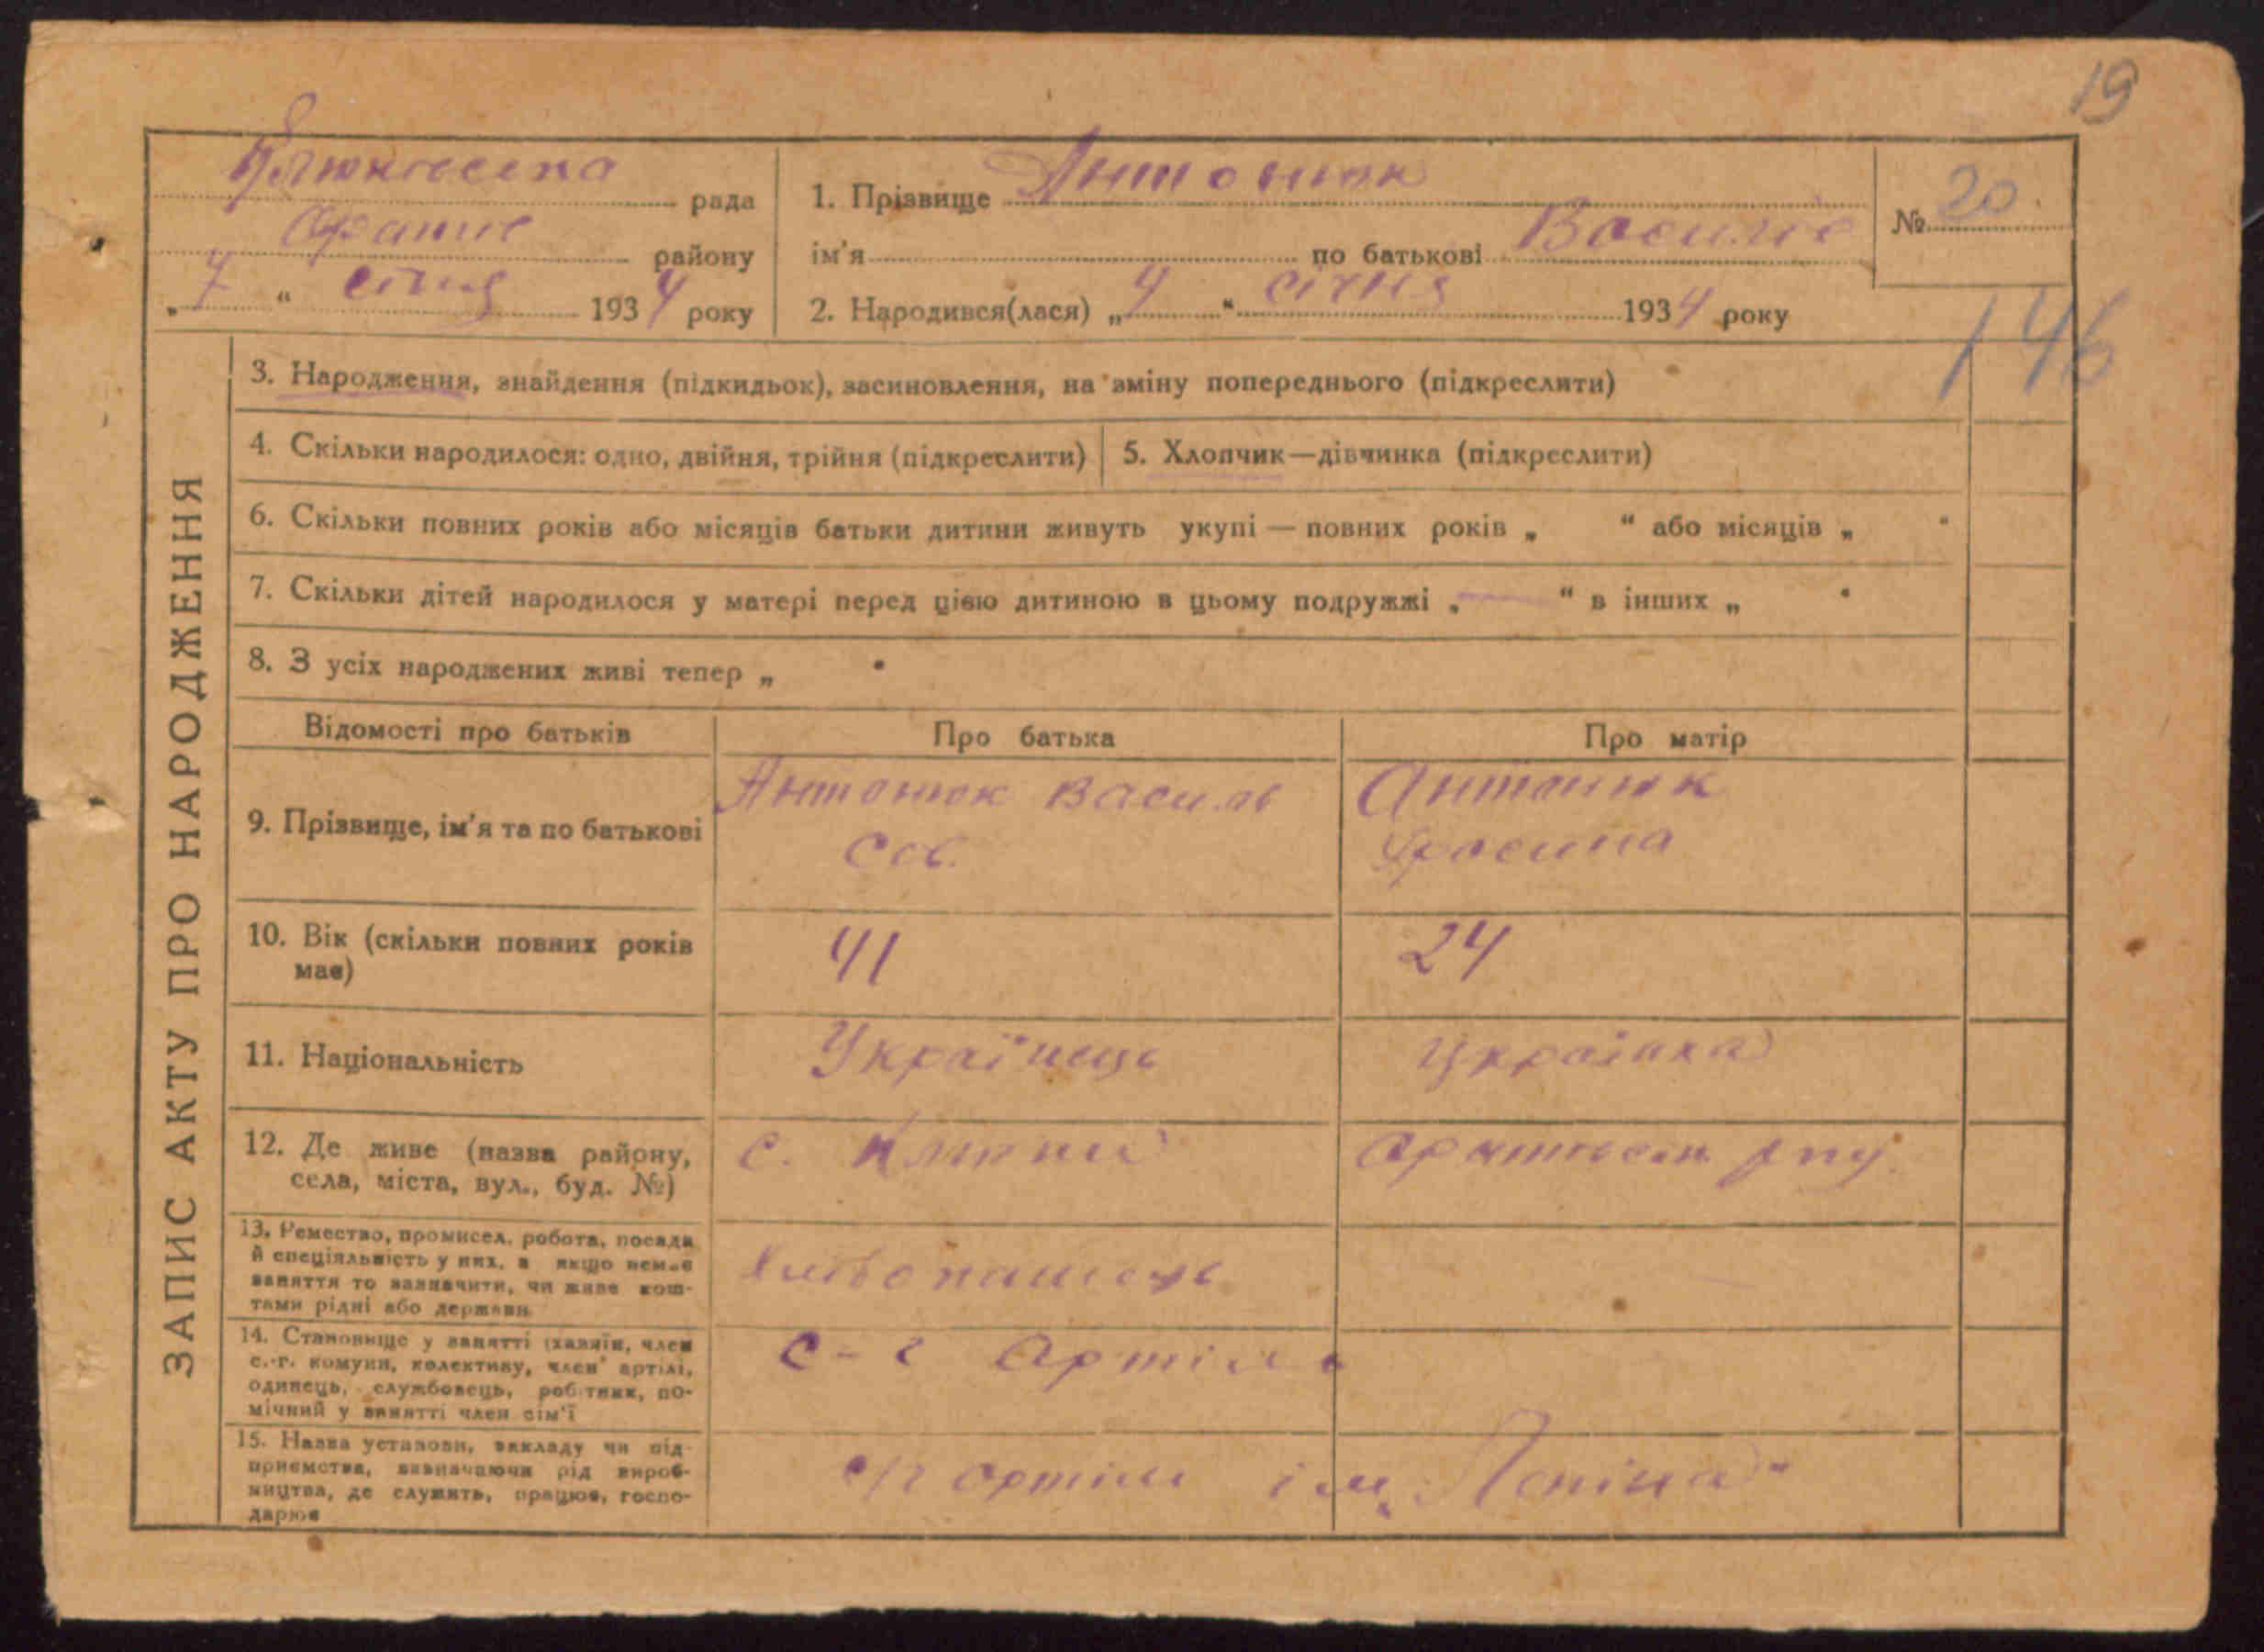 19
рада
1. Прізвище Антонюк
№ 20
району
ім'я по батькові
„7" січня 1934 року
2. Народився(лася) „4" січня 1934 року
146
ЗАПИС АКТУ ПРО НАРОДЖЕННЯ
3. Народження, знайдення (підкидьок), засиновлення, на зміну попереднього (підкреслити)
4. Скільки народилося: одно, двійня, трійня (підкреслити)
5. Хлопчик—дівчинка (підкреслити)
6. Скільки повних років або місяців батьки дитини живуть укупі — повних років „ " або місяців „ "
7. Скільки дітей народилося у матері перед цією дитиною в цьому подружжі „ — " в інших „ "
8. З усіх народжених живі тепер „ "
Відомості про батьків
Про батька
Про матір
9. Прізвище, ім'я та по батькові
Антонюк Василь
Антонюк
10. Вік (скільки повних років
має)
41
24
11. Національність
Українець
Українка
12. Де живе (назва району,
села, міста, вул., буд. №)
с.
13. Ремество, промисел, робота, посада
й спеціяльність у них, а якщо немає
заняття то зазначити, чи живе кош-
тами рідні або держави
Хлібопашець
14. Становище у занятті (хазяїн, член
с.-г. комуни, колективу, член артілі,
одинець, службовець, робітник, по-
мічний у занятті член сім'ї
с-г артіль
15. Назва установи, закладу чи під-
приємства, визначаючи рід вироб-
ництва, де служить, працює, госпо-
дарює
с/г артіль ім. Леніна